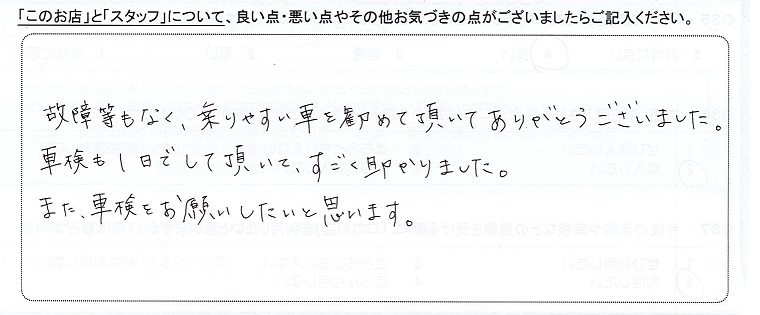 「このお店」と「スタッフ」について、良い点・悪い点やその他お気づきの点がございましたらご記入ください。
故障等もなく、乗りやすい車を勧めて頂いてありがとうございました。
車検も1日でして頂いて、すごく助かりました。
また、車検をお願いしたいと思います。